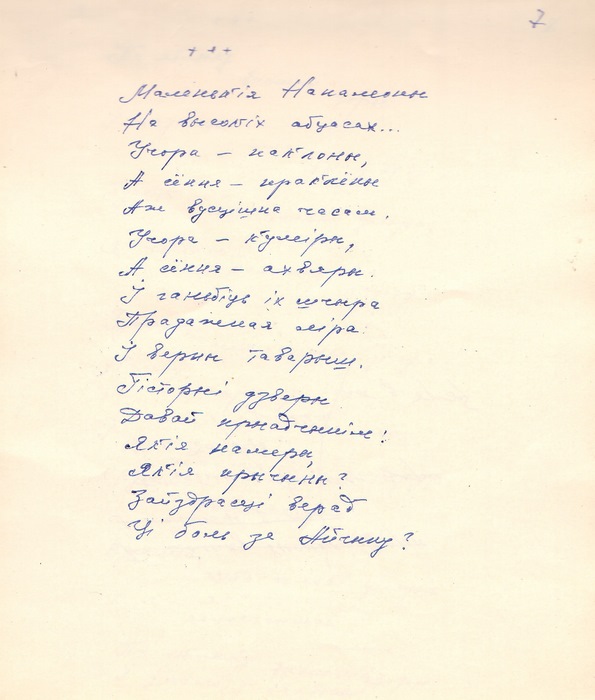 7
+ + +
Маленькія Напалеоны
На высокіх абцасах...
Учора – паклоны,
А сёння – праклёны
Аж вусцішна часам.
Учора – куміры,
А сёння – ахвяры.
І ганьбіць іх шчыра
Прадажная ліра
І верны таварыш.
Гісторыі дзверы
Давай прыадчынім:
Якія намеры,
Якія прычыны?
Зайздрасці верад
Ці боль за Айчыну?